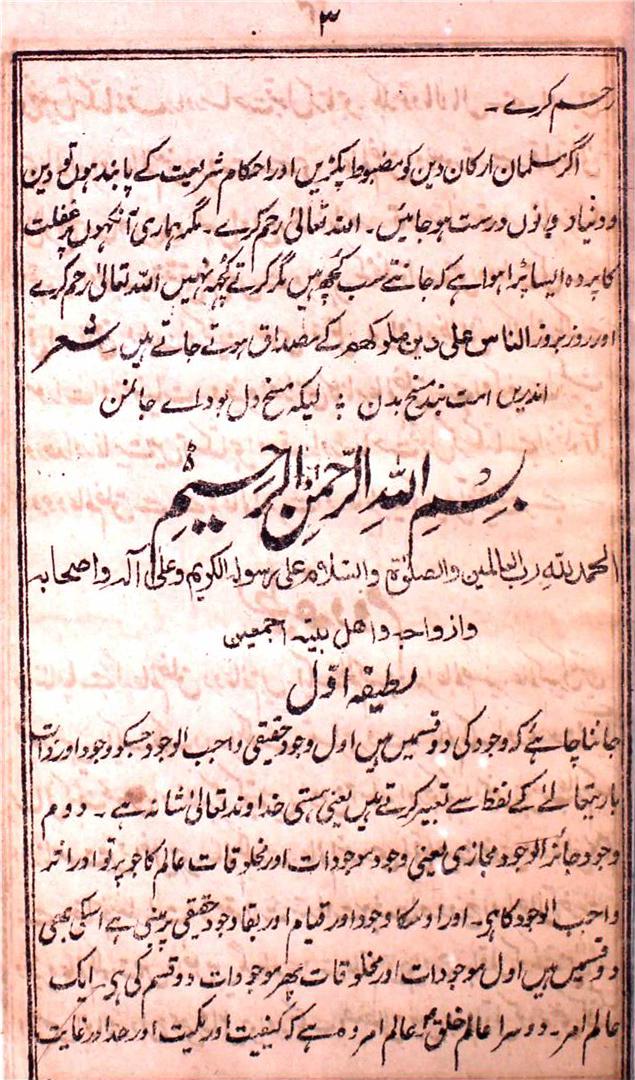 ٣
رحم کرے ۔
اگر مسلمان ارکان دین کو مضبوط پکڑیں اور احکام شریعت کے پابند ہوں تو دین
و دنیا دونوں درست ہو جائیں ۔ اللہ تعالیٰ رحم کرے ۔ مگر ہماری آنکھوں پر غفلت
کا پردہ ایسا پڑا ہوا ہے کہ جانتے سب کچھ ہیں مگر کرتے کچھ نہیں اللہ تعالیٰ رحم کرے
اور روز بروز الناس علی دین ملوکھم کے مصداق ہوتے جاتے ہیں ۔ شعر
اندریں امت بند مسخ بدن ؛ لیکہ مسخ دل بود اے جالمن
بِسْمِ اللّٰہِ الرَّحْمٰنِ الرَّحِیْمِ
الحمد للّٰہ رب العالمین والصلوٰۃ والسلام علی رسولہ الکریم وعلیٰ آلہ واصحابہ
وازواجہ واھل بیتہ اجمعین
لطیفہ اوّل
جاننا چاہئے کہ وجود کی دو قسمیں ہیں اول وجود حقیقی واجب الوجود جسکو وجود اور ذات
باریتعالےٰ کے لفظ سے تعبیر کرتے ہیں یعنی ہستی خداوند تعالیٰ شانہ ہے ۔ دوم
وجود جائز الوجود مجازی یعنی وجود موجودات اور مخلوقات عالم کا جو پرتو اور اثر
واجب الوجود کا ہی ۔ اور اوسکا وجود اور قیام اور بقا وجود حقیقی پر مبنی ہے اسکی بھی
دو قسمیں ہیں اول موجودات اور مخلوقات پھر موجودات دو قسم کی ہی ۔ ایک
عالم امر ۔ دوسرا عالم خلق عالم امر وہ ہے کہ کیفیت اور کمیت اور حد اور غایت